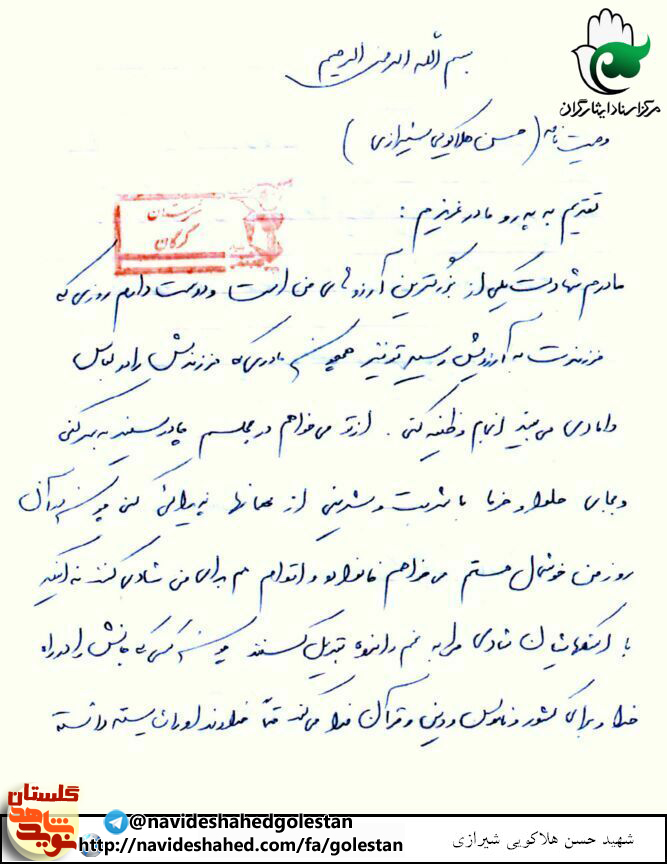 مرکز اسناد ایثارگران
بسم الله الرحمن الرحیم
وصیت نامه (حسن هلاکویی شیرازی)
تقدیم به پدر و مادر عزیزم :
گرگان
مادرم شهادت یکی از بزرگترین آرزوهای من است و دوست دارم روزی که
فرزندت به آرزویش رسید تو نیز همچون مادری که فرزندش را در لباس
دامادی می بیند انجام وظیفه کنی . از تو می خواهم در مجلسم چادر سفید به سر کنی
و بجای حلوا و خرما با شربت و شیرینی از مهمانها پذیرائی کنی چون در آن
روز من خوشحال هستم می خواهم خانواده و اقوام هم برای من شادی کنند نه اینکه
با اشکهایشان شادی مرا به غم و اندوه تبدیل کنند چون کسی که جانش را در راه
خدا و برای کشور و ناموس و دین و قرآن فدا می کند حتماً خداوند او را شایسته دانسته
گلستان
نوید شاهد
@navideshahedgolestan
http://navideshahed.com/fa/golestan
شهید حسن هلاکویی شیرازی